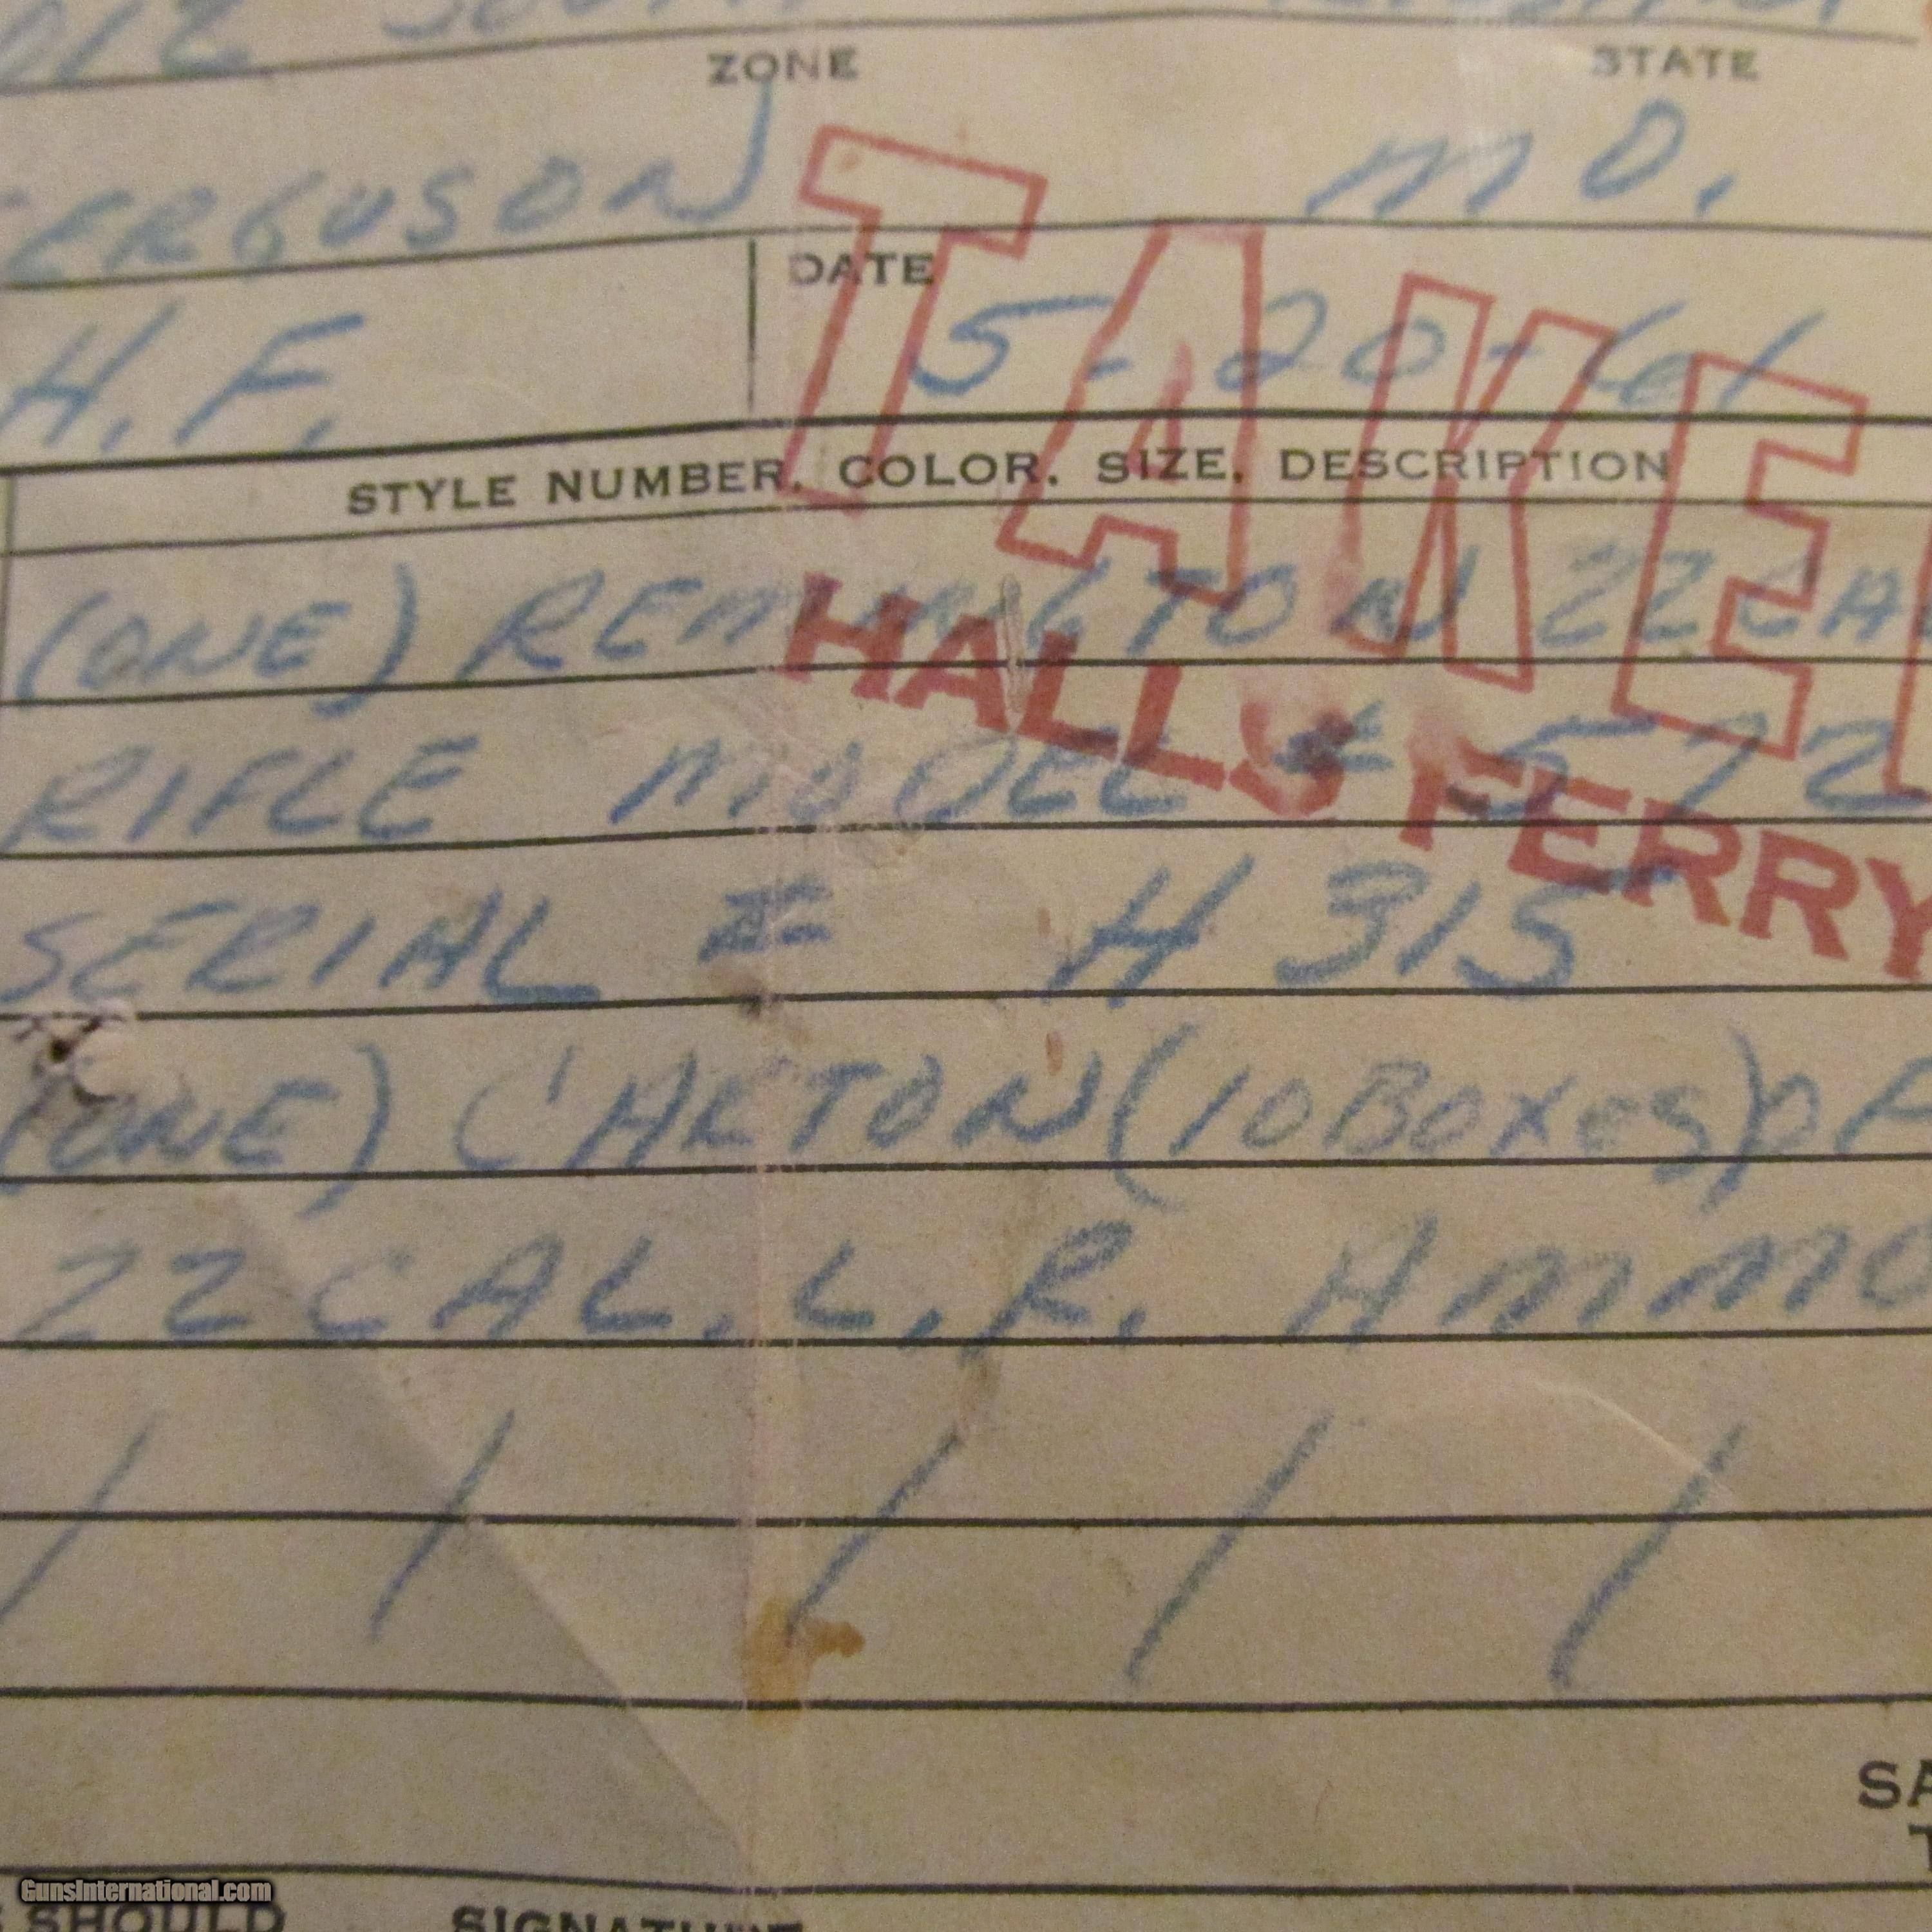 ZONE STATE
FERGUSON MO.
DATE
H.F. 5-20-61
TAKE
STYLE NUMBER, COLOR, SIZE, DESCRIPTION
(ONE) REMINGTON 22 CA
HALLS FERRY
RIFLE MODEL # 572
SERIAL # H 315
(ONE) CARTON (10 BOXES) OF
22 CAL. L.R. AMMO
SA
GunsInternational.com
SHOULD SIGNATURE